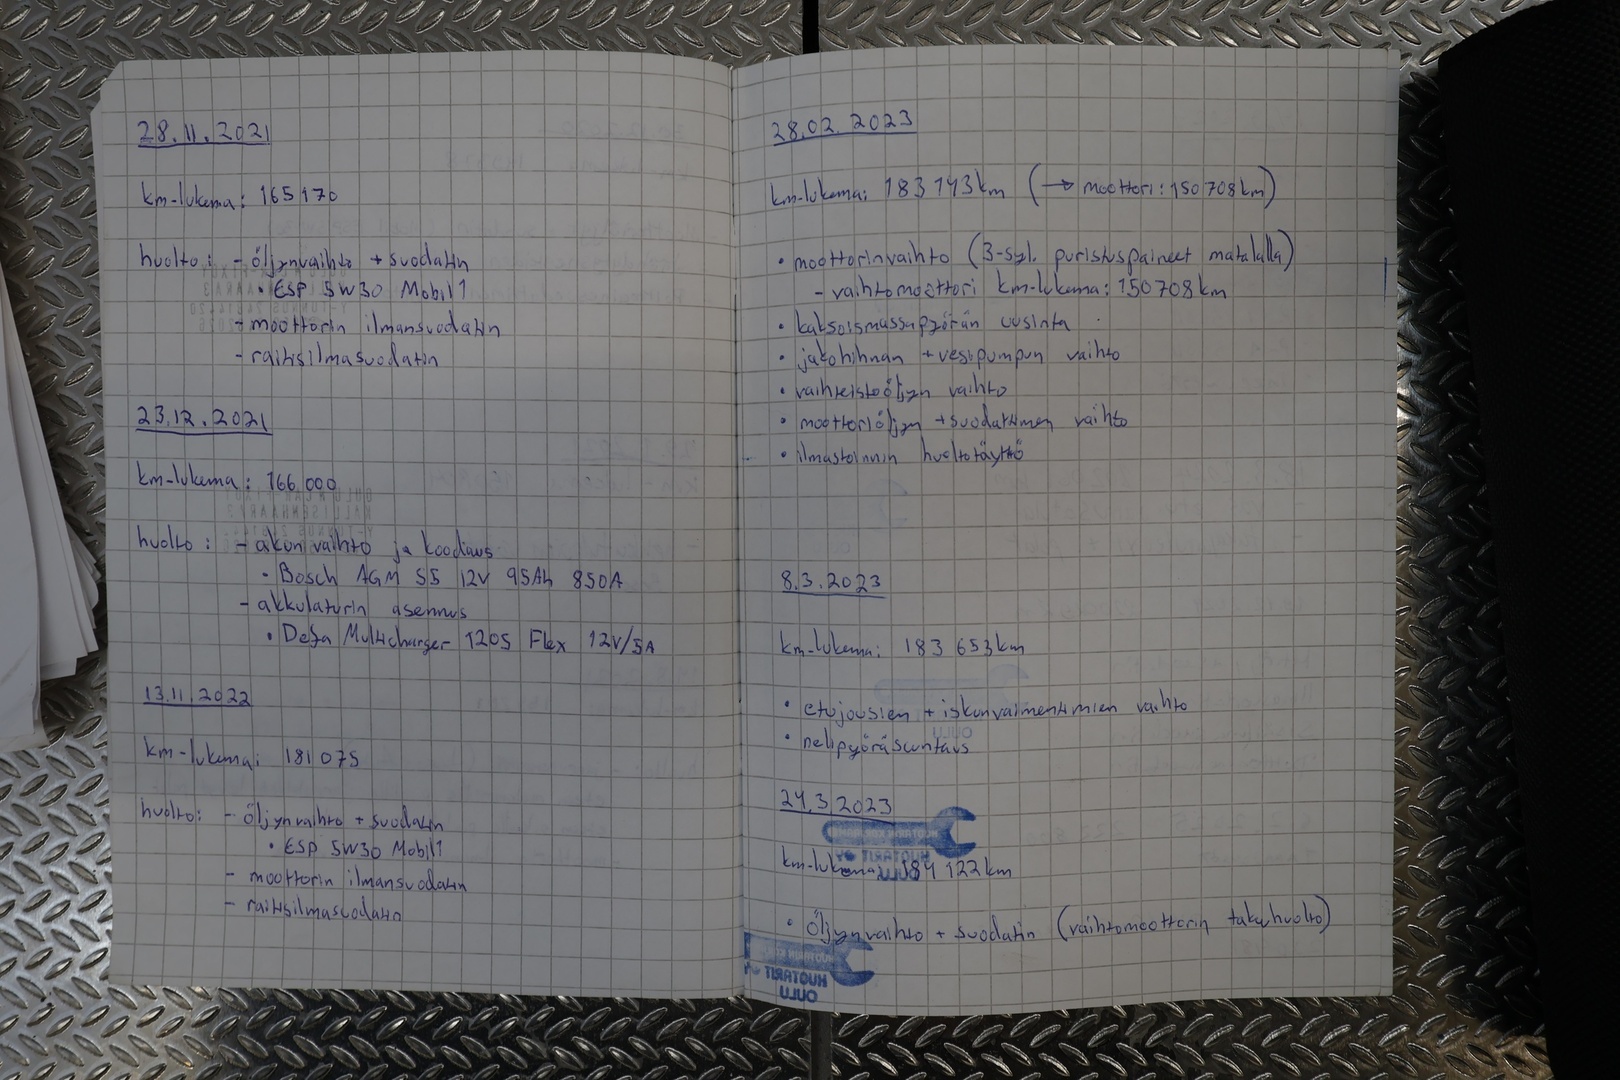 28.11.2021
km-lukema: 165170
huolto: - öljynvaihto + suodatin
• ESP 5W30 Mobil1
- moottorin ilmansuodatin
- raitisilmasuodatin
23.12.2021
km-lukema: 166 000
huolto: - akun vaihto ja koodaus
• Bosch AGM S5 12V 95Ah 850A
- akkulaturin asennus
• Defa Multicharger 1205 Flex 12V/5A
13.11.2022
km-lukema: 181 075
huolto: - öljynvaihto + suodatin
• ESP 5W30 Mobil1
- moottorin ilmansuodatin
- raitisilmasuodatin
28.02.2023
km-lukema: 183 143km (→ moottori: 150 708km)
• moottorinvaihto (3-syl. puristuspaineet matalalla)
- vaihtomoottori km-lukema: 150 708 km
• kaksoismassapyörän uusinta
• jakohihnan + vesipumpun vaihto
• vaihteistoöljyn vaihto
• moottoriöljyn + suodattimen vaihto
• ilmastoinnin huoltotäyttö
8.3.2023
km-lukema: 183 653km
• etujousien + iskunvaimentimien vaihto
• nelipyöräsuntaus
24.3.2023
km-lukema: 184 122km
• öljynvaihto + suodatin (vaihtomoottorin takuuhuolto)
HUOTARIT OY
OULU
HUOTARIT
OULU